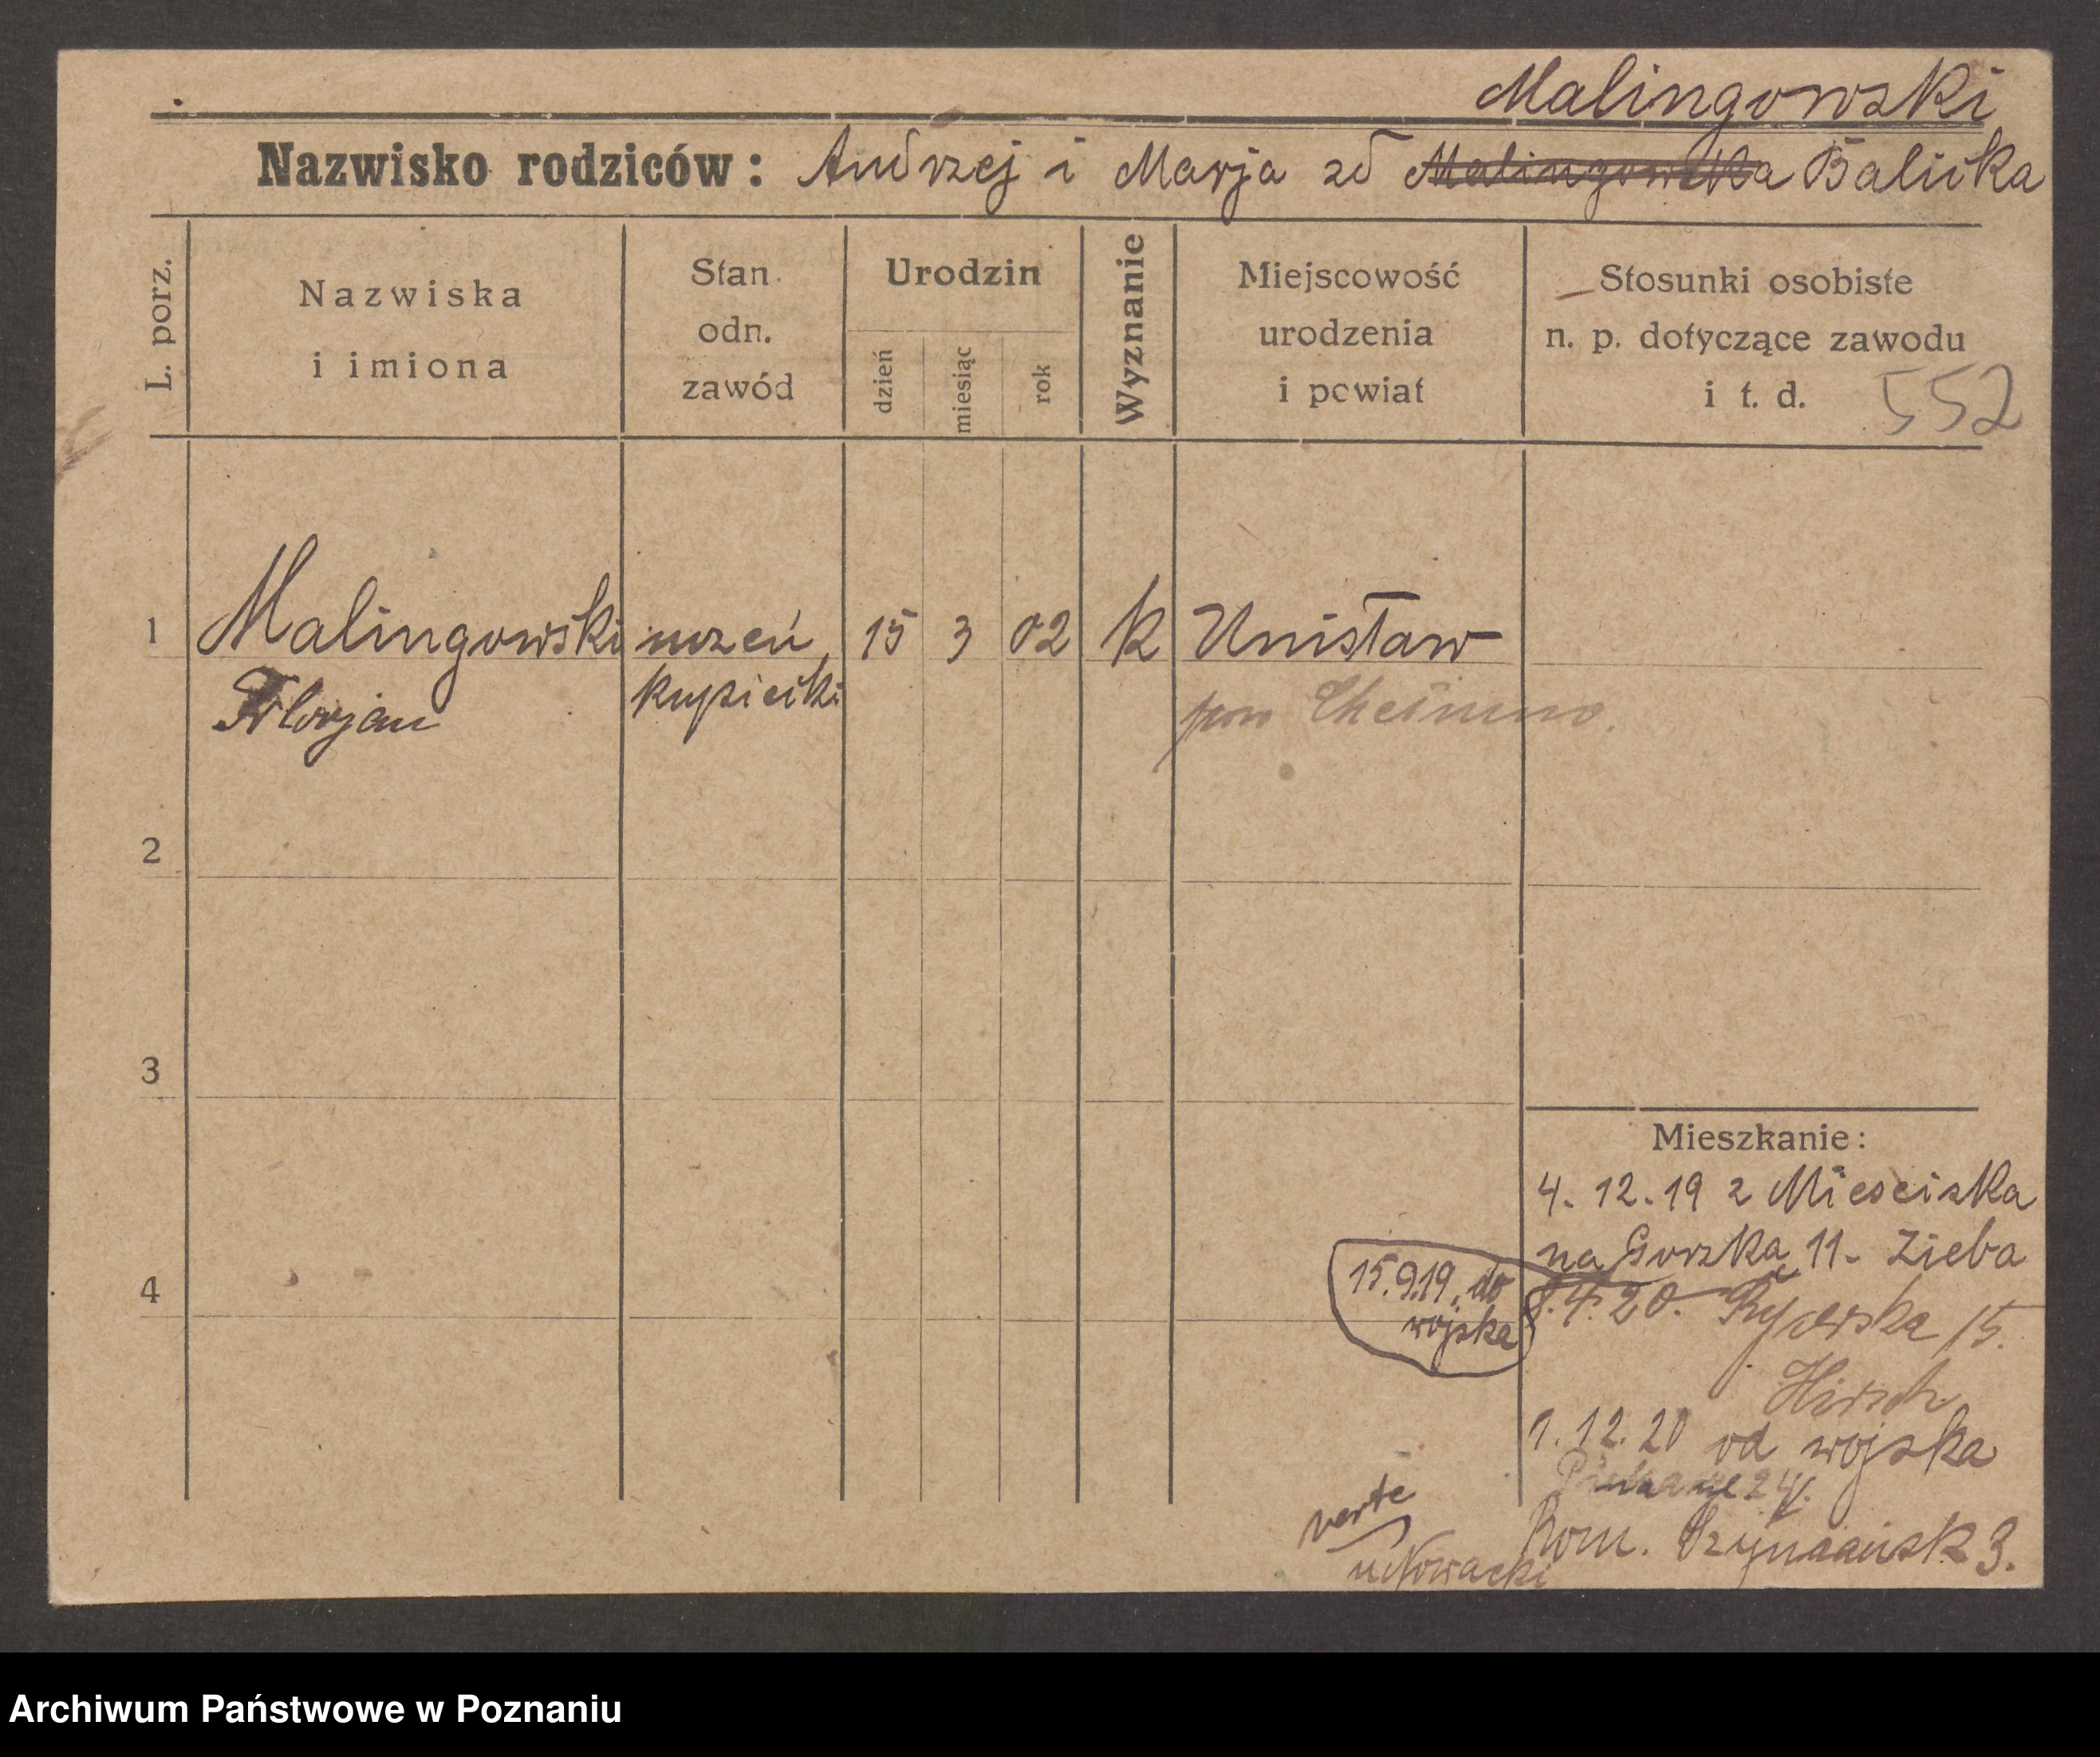 Malingowski
Nazwisko rodziców: Andrzej i Marja zd Malingowska Balicka
L. porz.
Nazwiska
i imiona
Stan
odn.
zawód
Urodzin
dzień
miesiąc
rok
Wyznanie
Miejscowość
urodzenia
i powiat
Stosunki osobiste
n. p. dotyczące zawodu
i t. d.
552
1 Malingowski uczeń 15 3 02 k Unisław
Florjan kupiecki pow Chełmno.
2
3
4
Mieszkanie:
4. 12. 19 z Miesciska
na Gorzka 11 - Zieba
15.9.19. do
wojska
8.4.20. Rycerska 15.
Hirsch
1. 12. 20 od wojska
24.
Rom. Szymańsk 3.
verte
u Nowacki
Archiwum Państwowe w Poznaniu